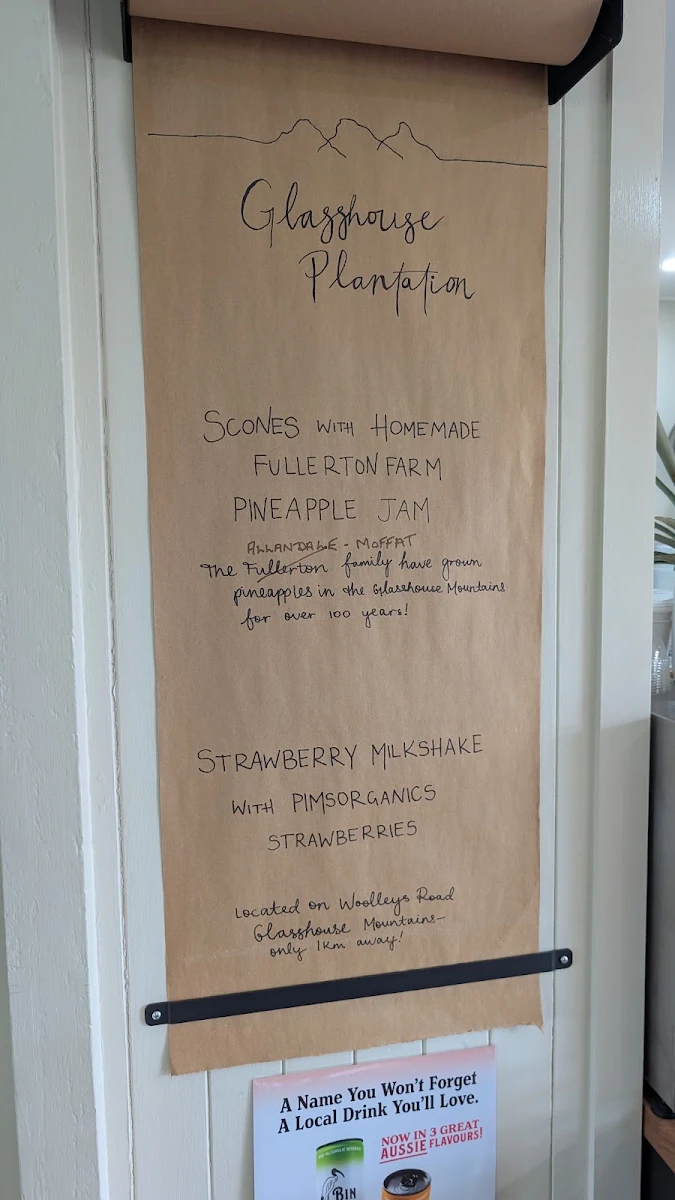 Glasshouse
Plantation
SCONES WITH HOMEMADE
FULLERTON FARM
PINEAPPLE JAM
ALLANDALE - MOFFAT
The Fullerton family have grown
pineapples in the Glasshouse Mountains
for over 100 years!
STRAWBERRY MILKSHAKE
WITH PIMSORGANICS
STRAWBERRIES
Located on Woolleys Road
Glasshouse Mountains-
only 1km away!
A Name You Won't Forget
A Local Drink You'll Love.
NOW IN 3 GREAT
AUSSIE FLAVOURS!
BIN